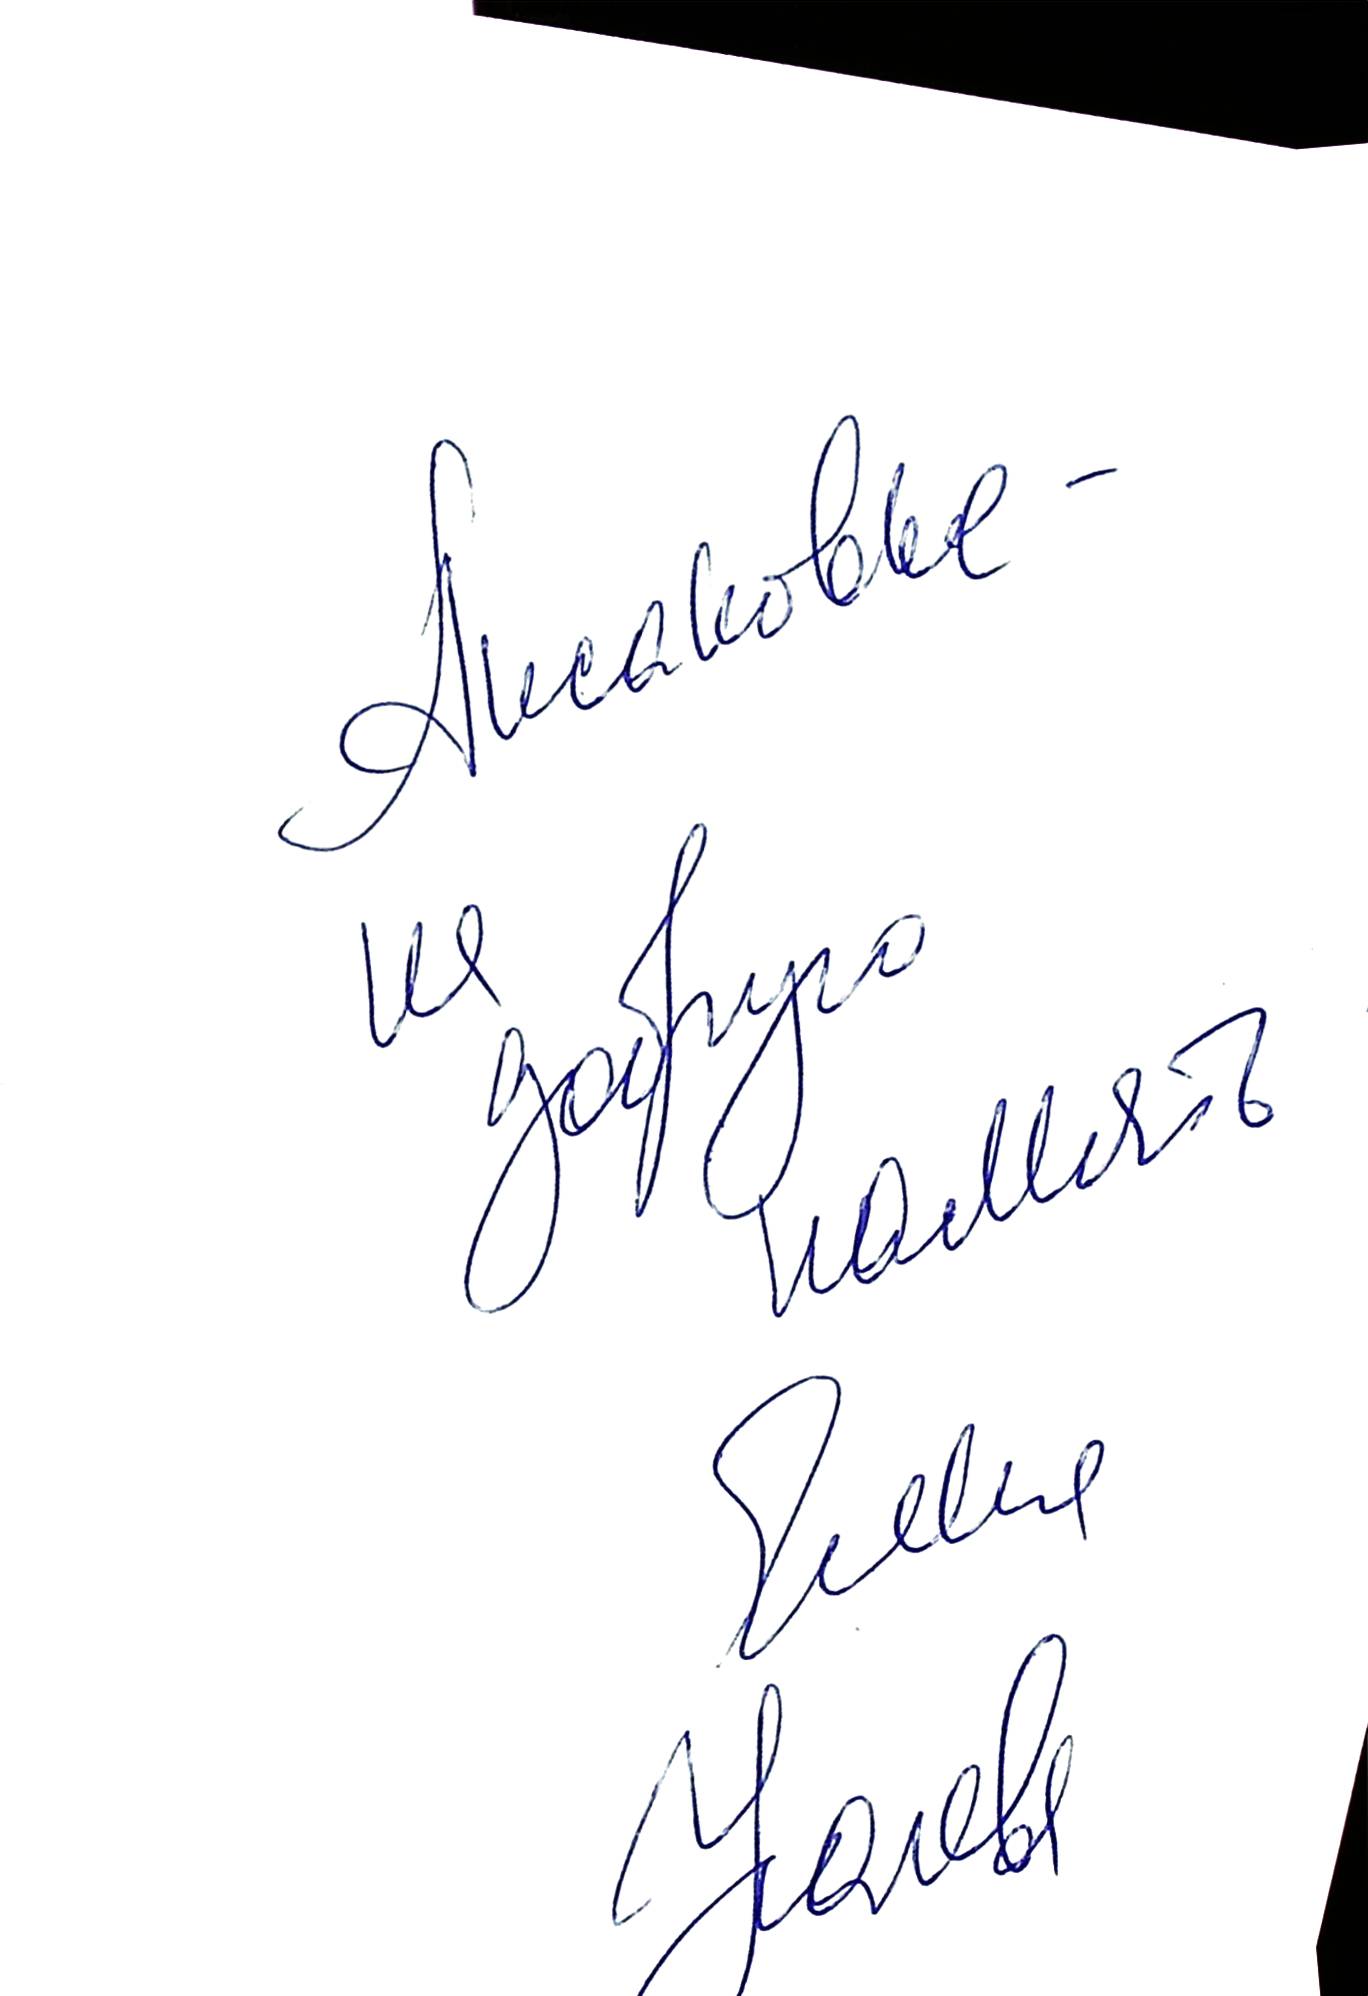 Аксаковке -
на
добрую
память
Елена
Усачева